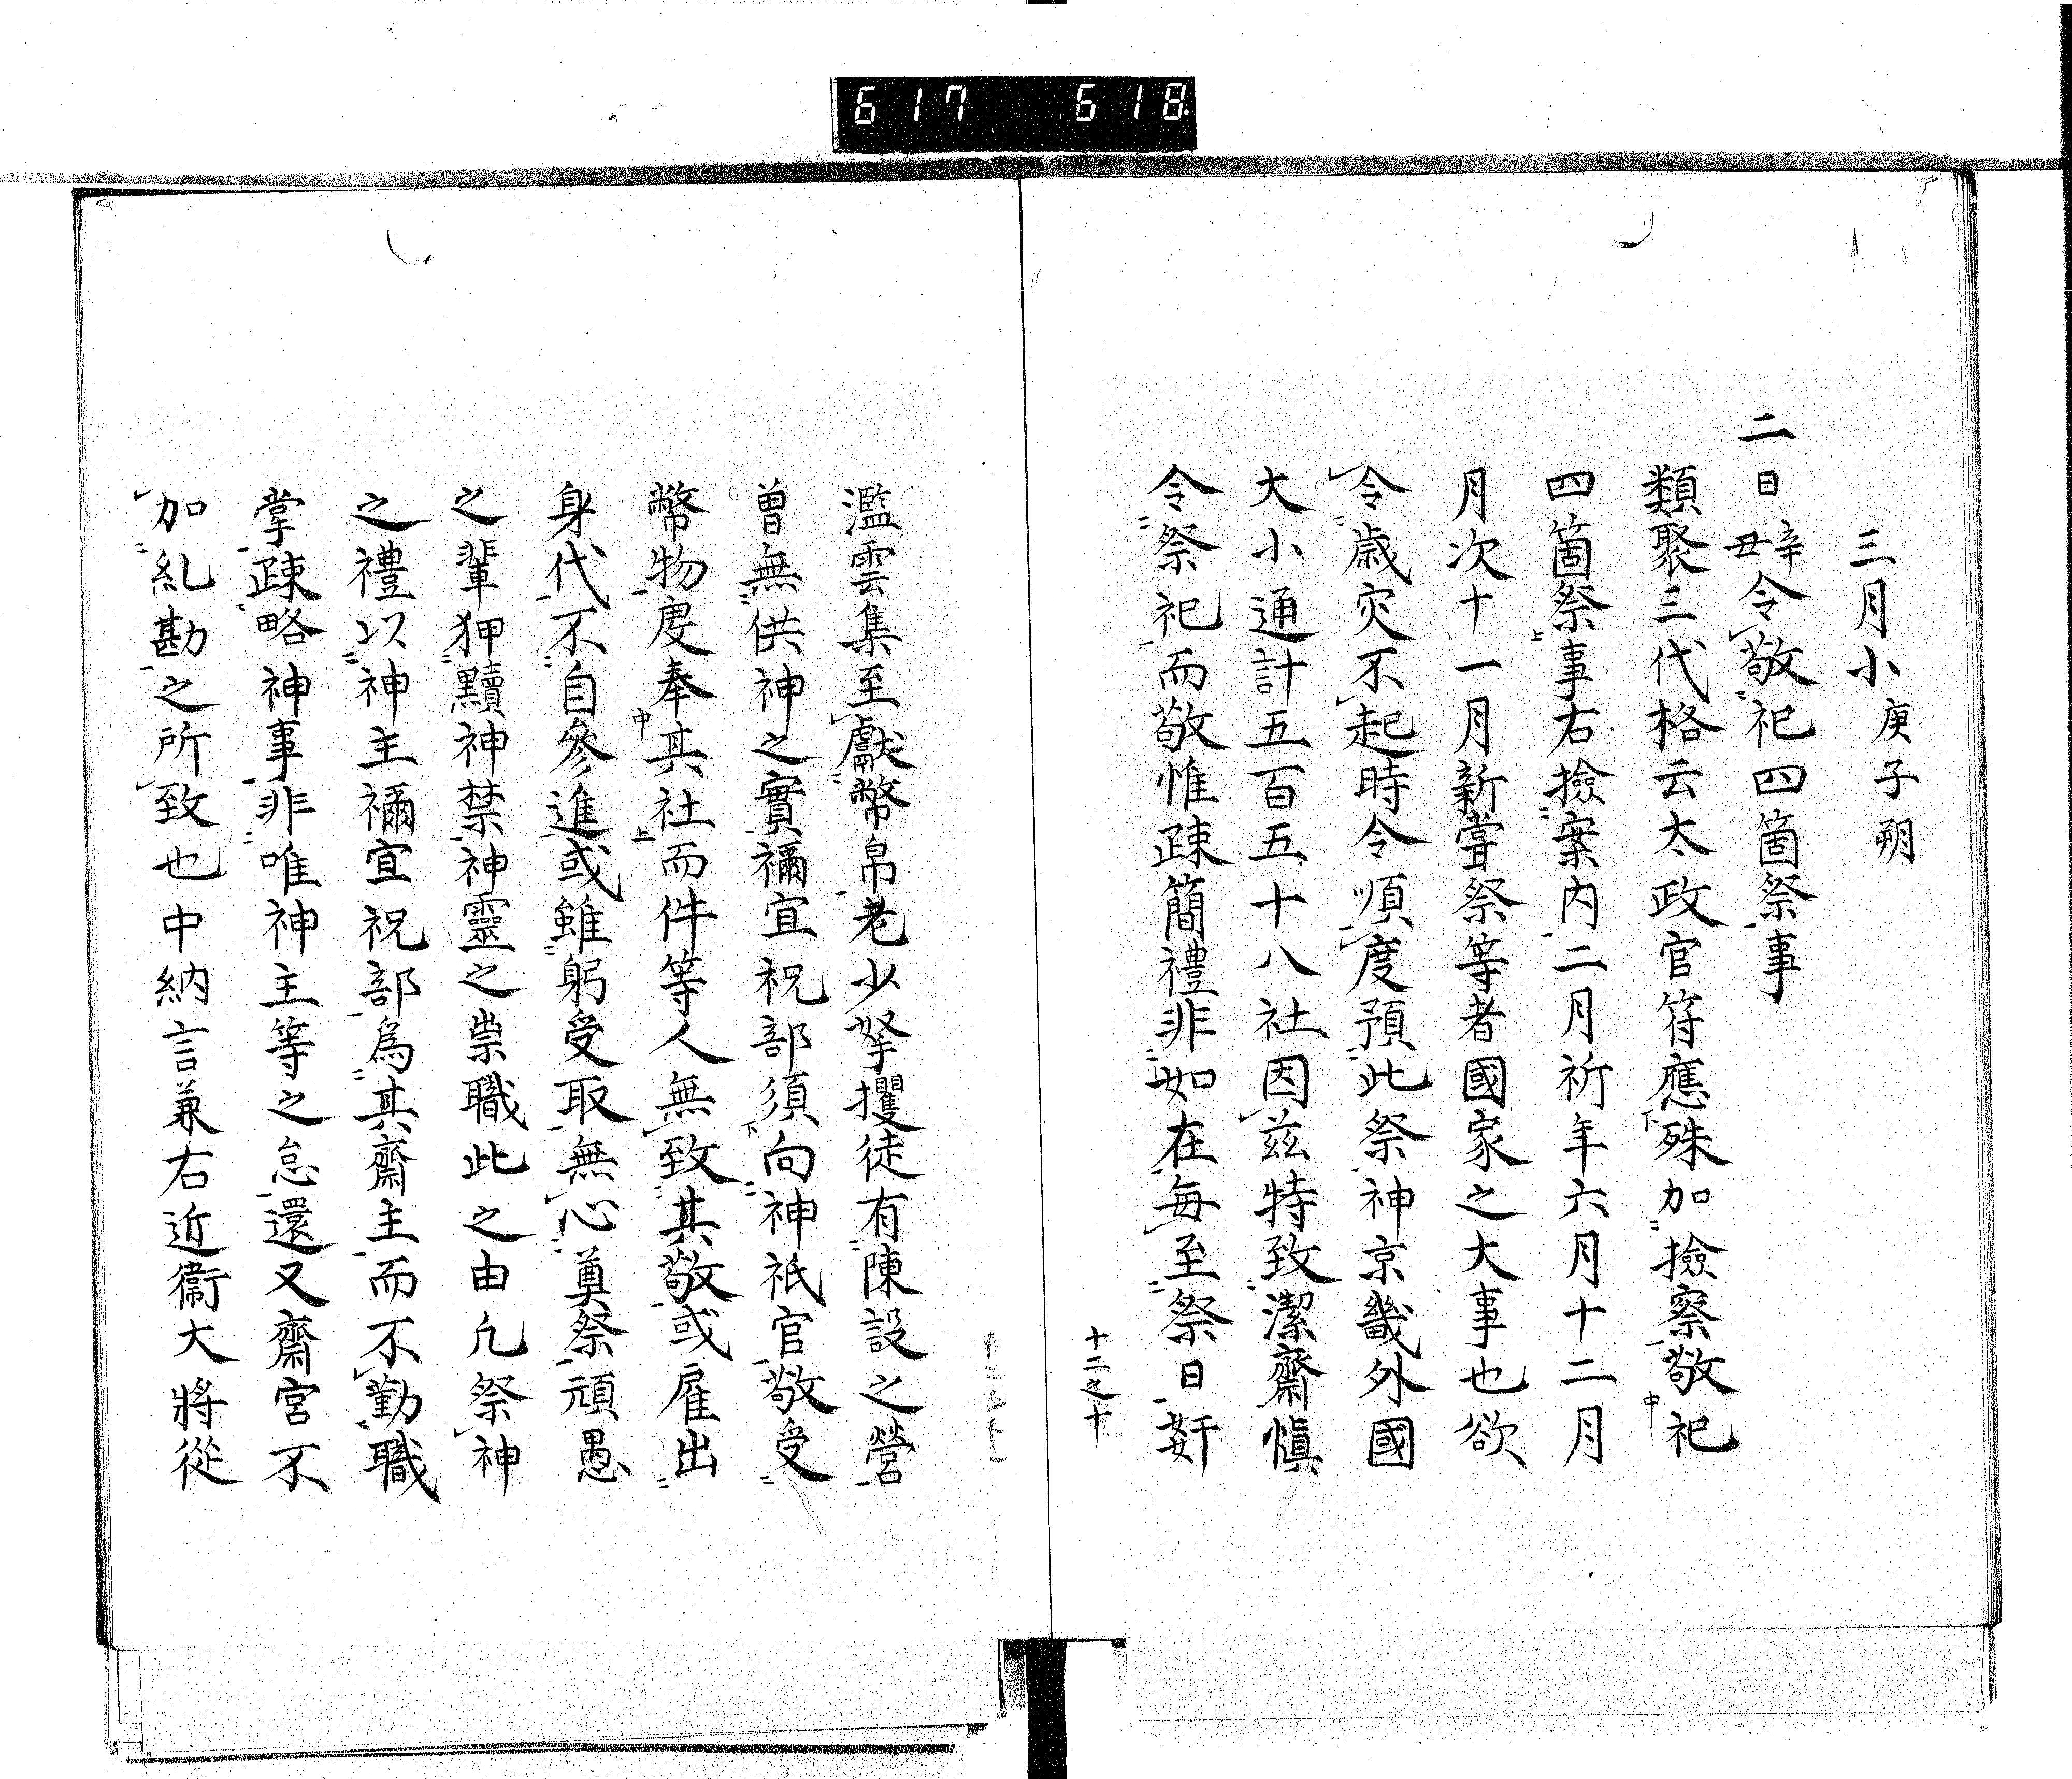 617 618
三月小庚子朔
二日辛丑令敬祀四箇祭事
類聚三代格云太政官符應殊加撿察敬祀
四箇祭事右撿案內二月祈年六月十二月
月次十一月新嘗祭等者國家之大事也欲
令歳灾不起時令順度預此祭神京畿外國
大小通計五百五十八社因茲特致潔齋愼
令祭祀而敬惟疎簡禮非如在每至祭日姧
十二之十
濫雲集至獻幣帛老少拏攫徒有陳設之營
曾無供神之實禰宜祝部須向神祇官敬受
幣物虔奉其社而件等人無致其敬或雇出
身代不自參進或雖躬受取無心奠祭頑愚
之輩狎黷神禁神靈之祟職此之由凢祭神
之禮以神主禰宜祝部爲其齋主而不勤職
掌疎略神事非唯神主等之怠還又齋宮不
加糺勘之所致也中納言兼右近衞大將從